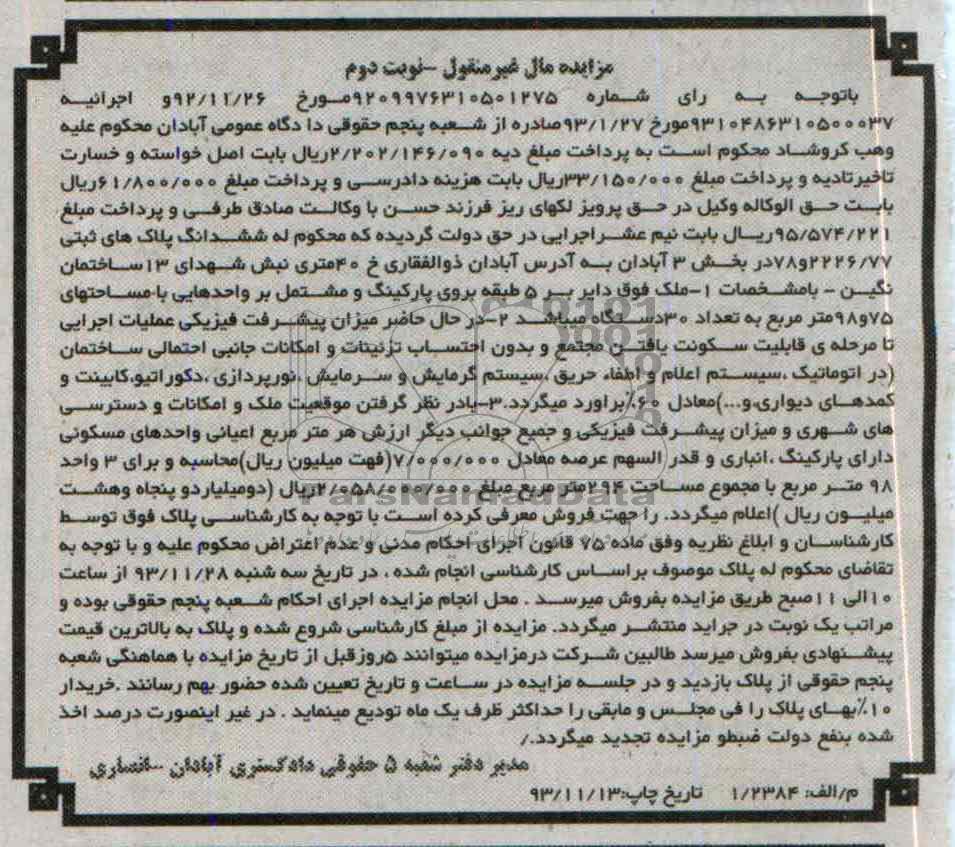 مزایده مال غیرمنقول -نوبت دوم
باتوجه به رای شماره ۹۲۰۹۹۷۶۳۱۰۵۰۱۲۷۵مورخ ۹۲/۱۱/۲۶و اجرائیه
۹۳۱۰۴۸۶۳۱۰۵۰۰۰۳۷مورخ ۹۳/۱/۲۷صادره از شعبه پنجم حقوقی دا دگاه عمومی آبادان محکوم علیه
وهب کروشاد محکوم است به پرداخت مبلغ دیه ۲/۲۰۲/۱۴۶/۰۹۰ریال بابت اصل خواسته و خسارت
تاخیرتادیه و پرداخت مبلغ ۳۳/۱۵۰/۰۰۰ریال بابت هزینه دادرسی و پرداخت مبلغ ۶۱/۸۰۰/۰۰۰ریال
بابت حق الوکاله وکیل در حق پرویز لکهای ریز فرزند حسن با وکالت صادق طرفی و پرداخت مبلغ
۹۵/۵۷۴/۲۲۱ریال بابت نیم عشراجرایی در حق دولت گردیده که محکوم له ششدانگ پلاک های ثبتی
۲۲۲۶/۷۷و۷۸در بخش ۳ آبادان به آدرس آبادان ذوالفقاری خ ۴۰متری نبش شهدای ۱۳ساختمان
نگین - بامشخصات ۱-ملک فوق دایر بر ۵ طبقه بروی پارکینگ و مشتمل بر واحدهایی با مساحتهای
۷۵و۹۸متر مربع به تعداد ۳۰دستگاه میباشد ۲-در حال حاضر میزان پیشرفت فیزیکی عملیات اجرایی
تا مرحله ی قابلیت سکونت یافتن مجتمع و بدون احتساب تزئینات و امکانات جانبی احتمالی ساختمان
(در اتوماتیک ،سیستم اعلام و اطفاء حریق ،سیستم گرمایش و سرمایش ،نورپردازی ،دکوراتیو،کابینت و
کمدهای دیواری،و...)معادل ۶۰٪براورد میگردد.۳-بادر نظر گرفتن موقعیت ملک و امکانات و دسترسی
های شهری و میزان پیشرفت فیزیکی و جمیع جوانب دیگر ارزش هر متر مربع اعیانی واحدهای مسکونی
دارای پارکینگ ،انباری و قدر السهم عرصه معادل ۷/۰۰۰/۰۰۰(فهت میلیون ریال)محاسبه و برای ۳ واحد
۹۸ متر مربع با مجموع مساحت ۲۹۴متر مربع مبلغ ۲/۰۵۸/۰۰۰/۰۰۰ریال (دومیلیاردو پنجاه وهشت
میلیون ریال )اعلام میگردد. را جهت فروش معرفی کرده است با توجه به کارشناسی پلاک فوق توسط
کارشناسان و ابلاغ نظریه وفق ماده ۷۵ قانون اجرای احکام مدنی و عدم اعتراض محکوم علیه و با توجه به
تقاضای محکوم له پلاک موصوف براساس کارشناسی انجام شده ، در تاریخ سه شنبه ۹۳/۱۱/۲۸ از ساعت
۱۰الی ۱۱صبح طریق مزایده بفروش میرسد . محل انجام مزایده اجرای احکام شعبه پنجم حقوقی بوده و
مراتب یک نوبت در جراید منتشر میگردد. مزایده از مبلغ کارشناسی شروع شده و پلاک به بالاترین قیمت
پیشنهادی بفروش میرسد طالبین شرکت درمزایده میتوانند ۵روزقبل از تاریخ مزایده با هماهنگی شعبه
پنجم حقوقی از پلاک بازدید و در جلسه مزایده در ساعت و تاریخ تعیین شده حضور بهم رسانند .خریدار
۱۰٪بهای پلاک را فی مجلس و مابقی را حداکثر ظرف یک ماه تودیع مینماید . در غیر اینصورت درصد اخذ
شده بنفع دولت ضبطو مزایده تجدید میگردد./
مدیر دفتر شعبه ۵ حقوقی دادگستری آبادان -انصاری
م/الف: ۱/۲۳۸۴ تاریخ چاپ:۹۳/۱۱/۱۳
ParsNamadData